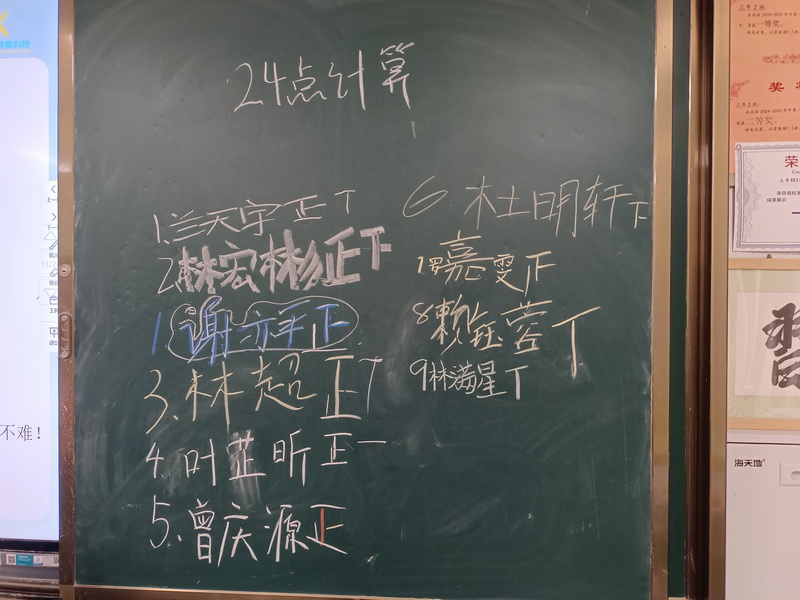 24点计算
1.兰天宇 正丅
2.林宏彬 正下
1 谢亦平 正
3.林超 正丅
4.叶芷昕 正一
5.曾庆源 正
6.杜明轩 下
7罗嘉雯 正
8赖钰蓉 丅
9林满星 丅
不难！
奖
一等奖
二等奖
荣
海天地